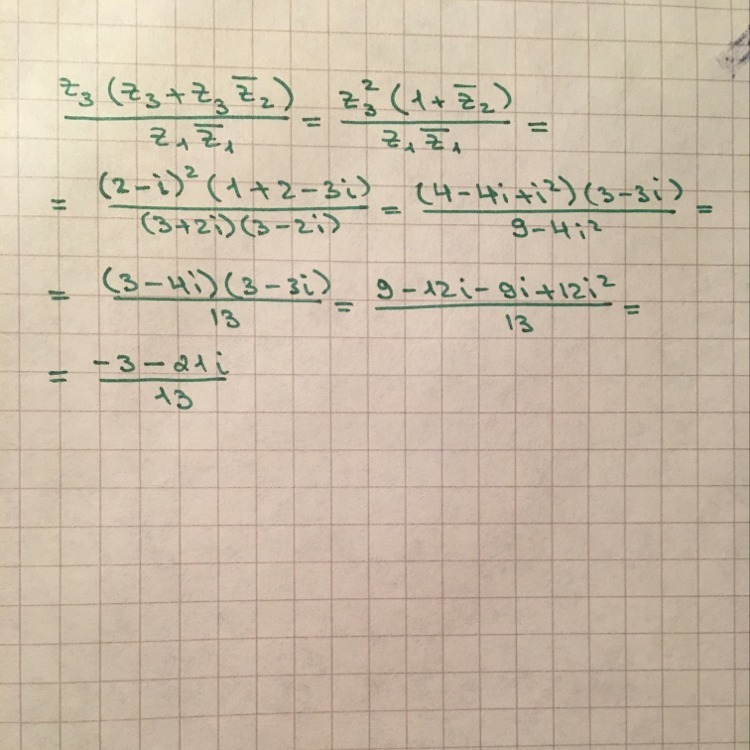 z₃(z₃+z₃z̅₂)/z₁z̅₁ = z₃²(1+z̅₂)/z₁z̅₁ =
= (2-i)²(1+2-3i)/(3+2i)(3-2i) = (4-4i+i²)(3-3i)/9-4i² =
= (3-4i)(3-3i)/13 = 9-12i-9i+12i²/13 =
= -3-21i/13